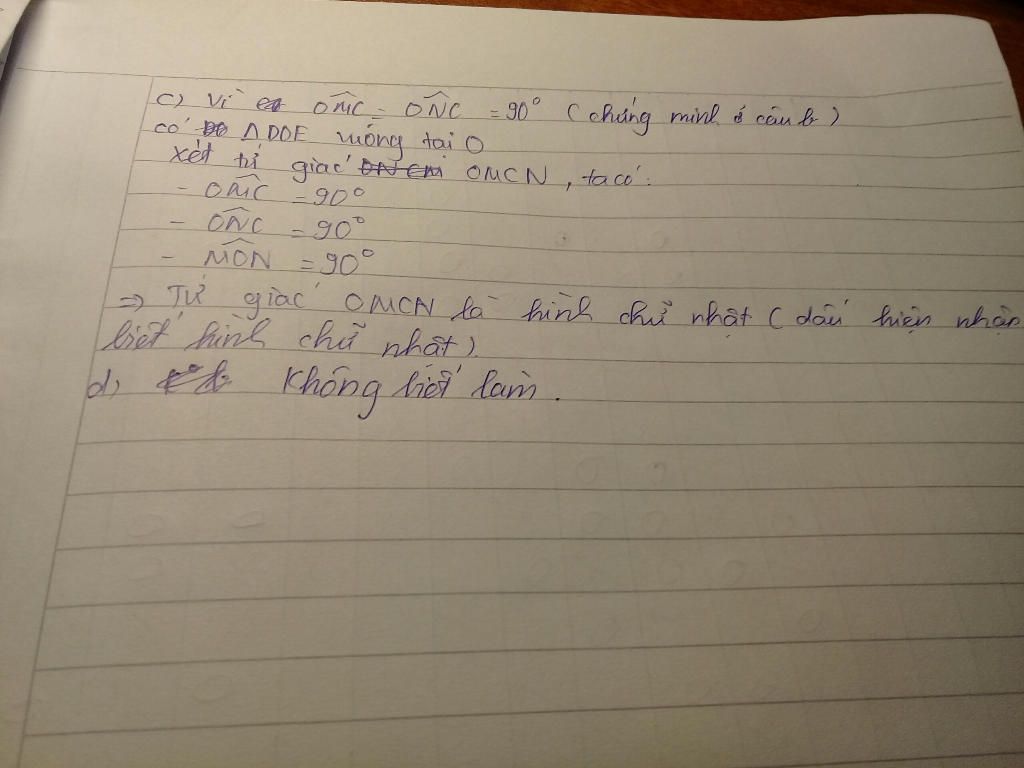 c) Vì OMC = ONC = 90° (chứng minh ở câu b)
có ΔDOE vuông tại O
xét tứ giác OMCN, ta có:
- OMC = 90°
- ONC = 90°
- MON = 90°
=> Tứ giác OMCN là hình chữ nhật (dấu hiện nhận
biết hình chữ nhật).
d, Không biết làm.